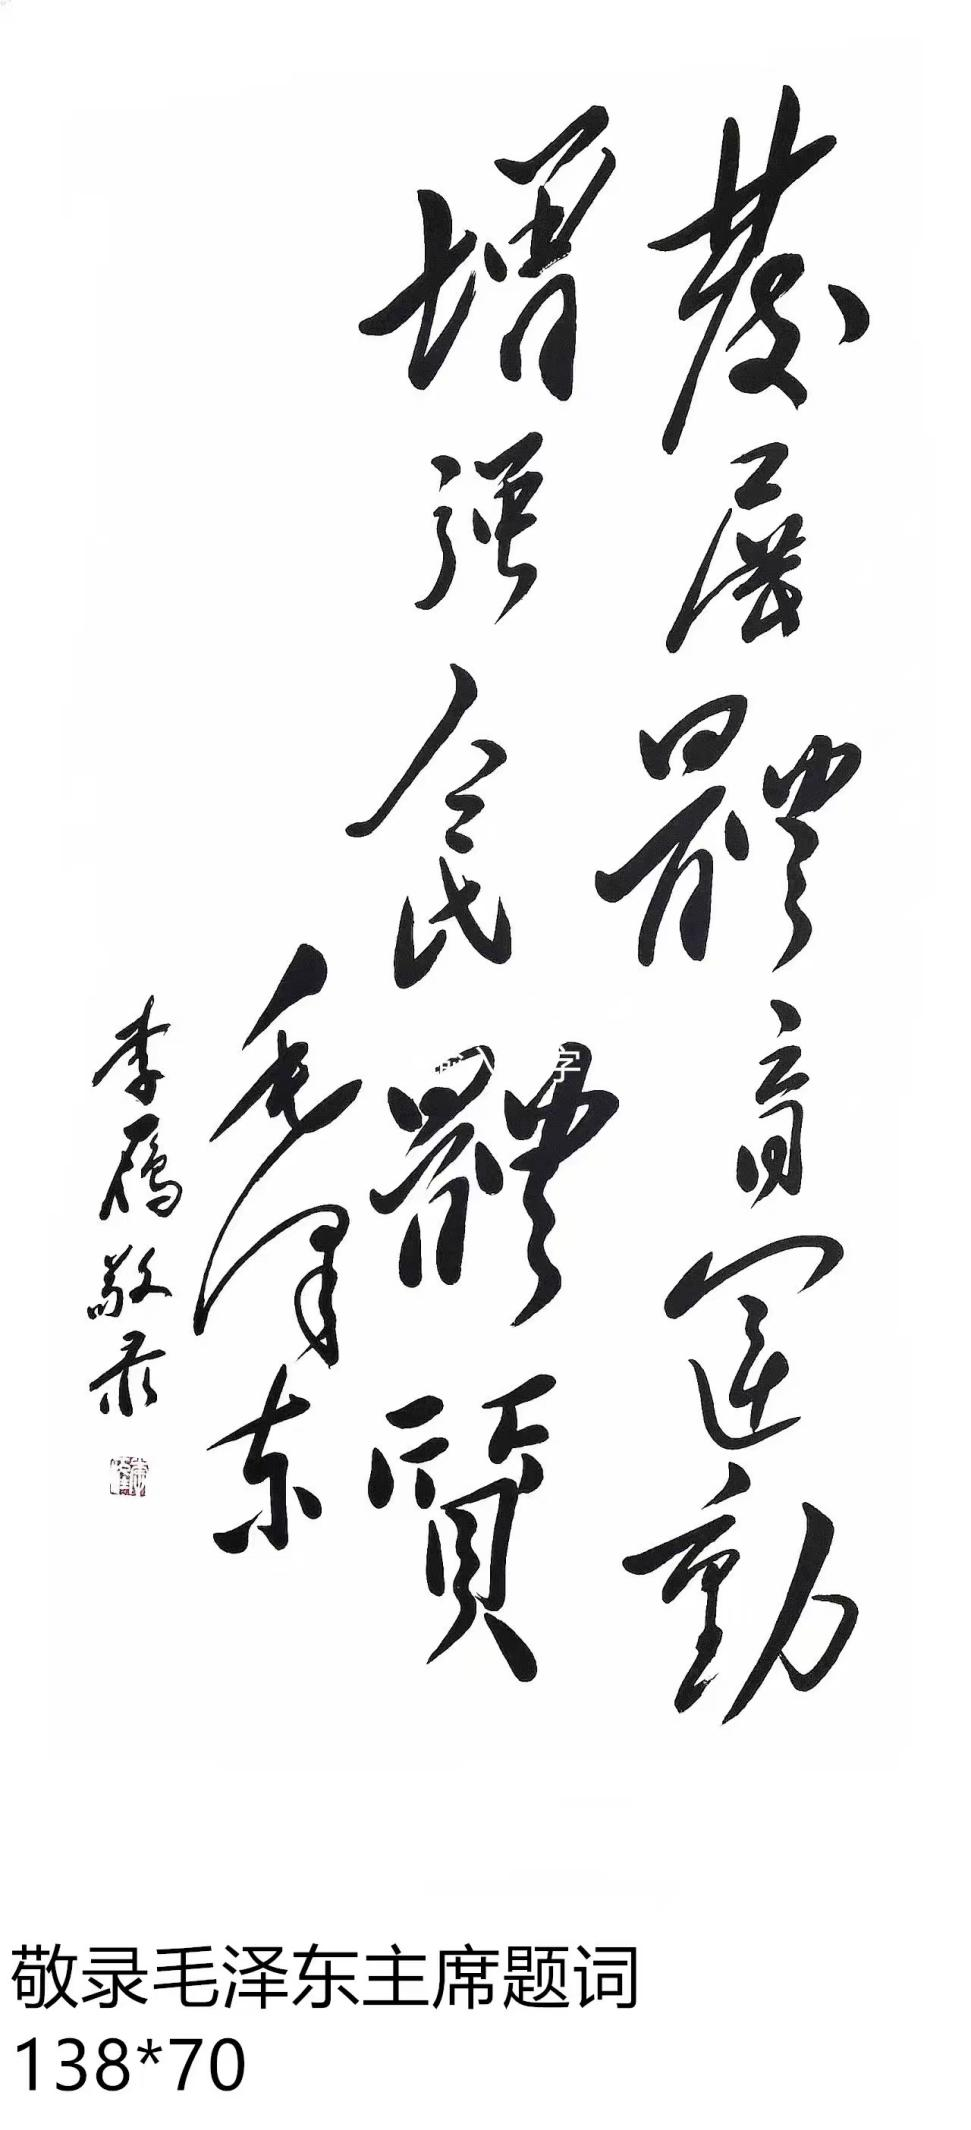 發展體育運動
增強人民體質
毛澤東
李鴈敬录
输入文字
敬录毛泽东主席题词
138*70